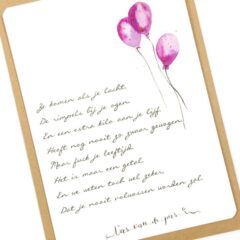 Ze komen als je lacht.
De rimpels bij je ogen.
En een extra kilo aan je lijf
Heeft nog nooit zo zwaar gewogen
Maar fuck je leeftijd
Het is maar een getal
En we weten toch wel zeker
Dat je nooit volwassen worden zal